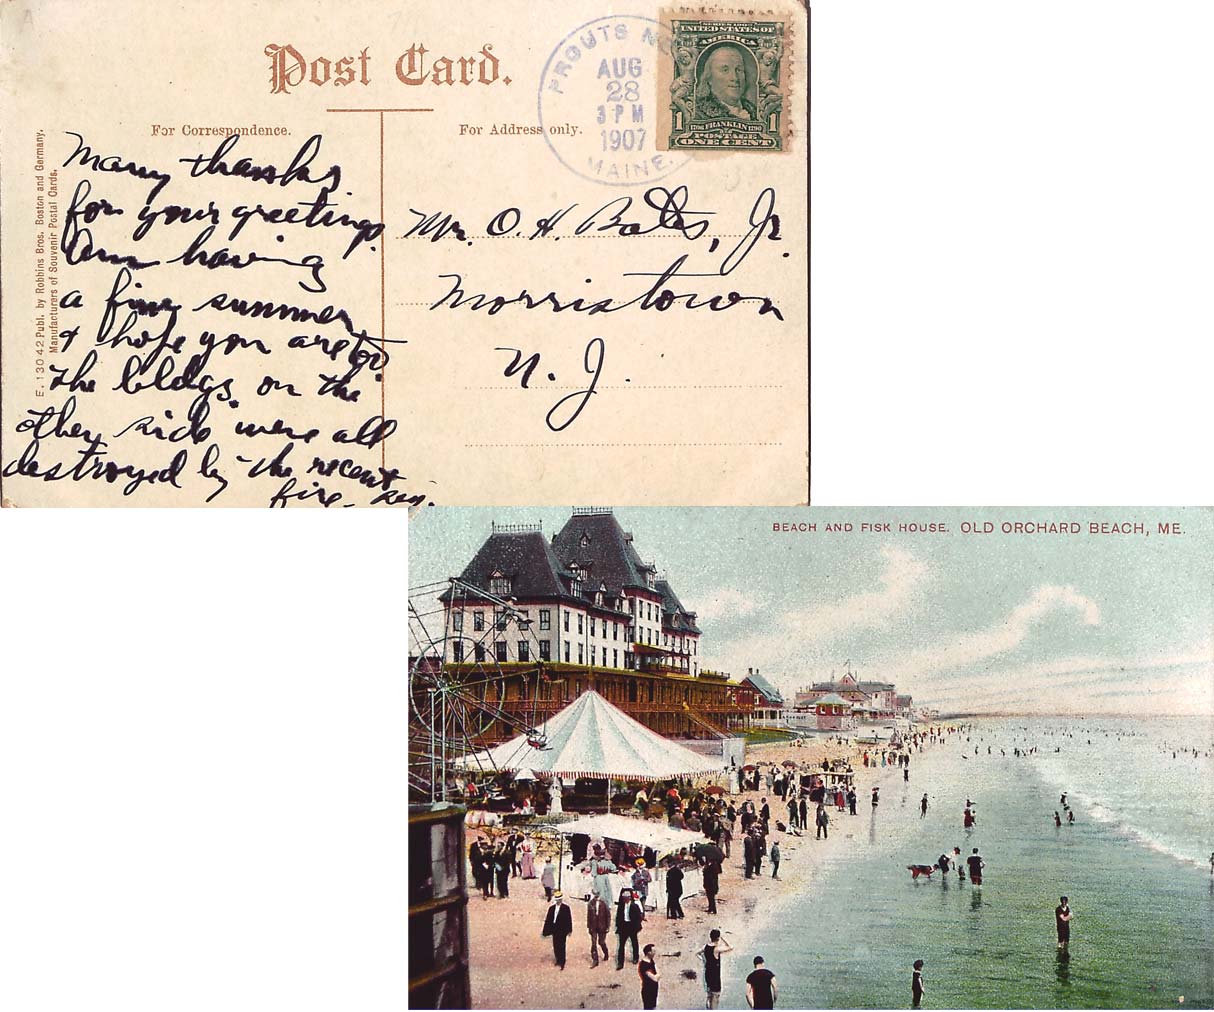 Post Card.
For Correspondence.
For Address only.
E. 13042. Publ. by Robbins Bros. Boston and Germany.
Manufacturers of Souvenir Postal Cards.
PROUTS NE
AUG
28
3 PM
1907
MAINE.
SERIES 1902
UNITED STATES OF
AMERICA
1706 FRANKLIN 1790
1 POSTAGE 1
ONE CENT
Many thanks
for your greetings
Am having
a fine summer
& hope you are too
The bldgs. on the
other side were all
destroyed by the recent
fire.
Mr. O. H. Bates, Jr.
Morristown
N. J.
BEACH AND FISK HOUSE. OLD ORCHARD BEACH, ME.